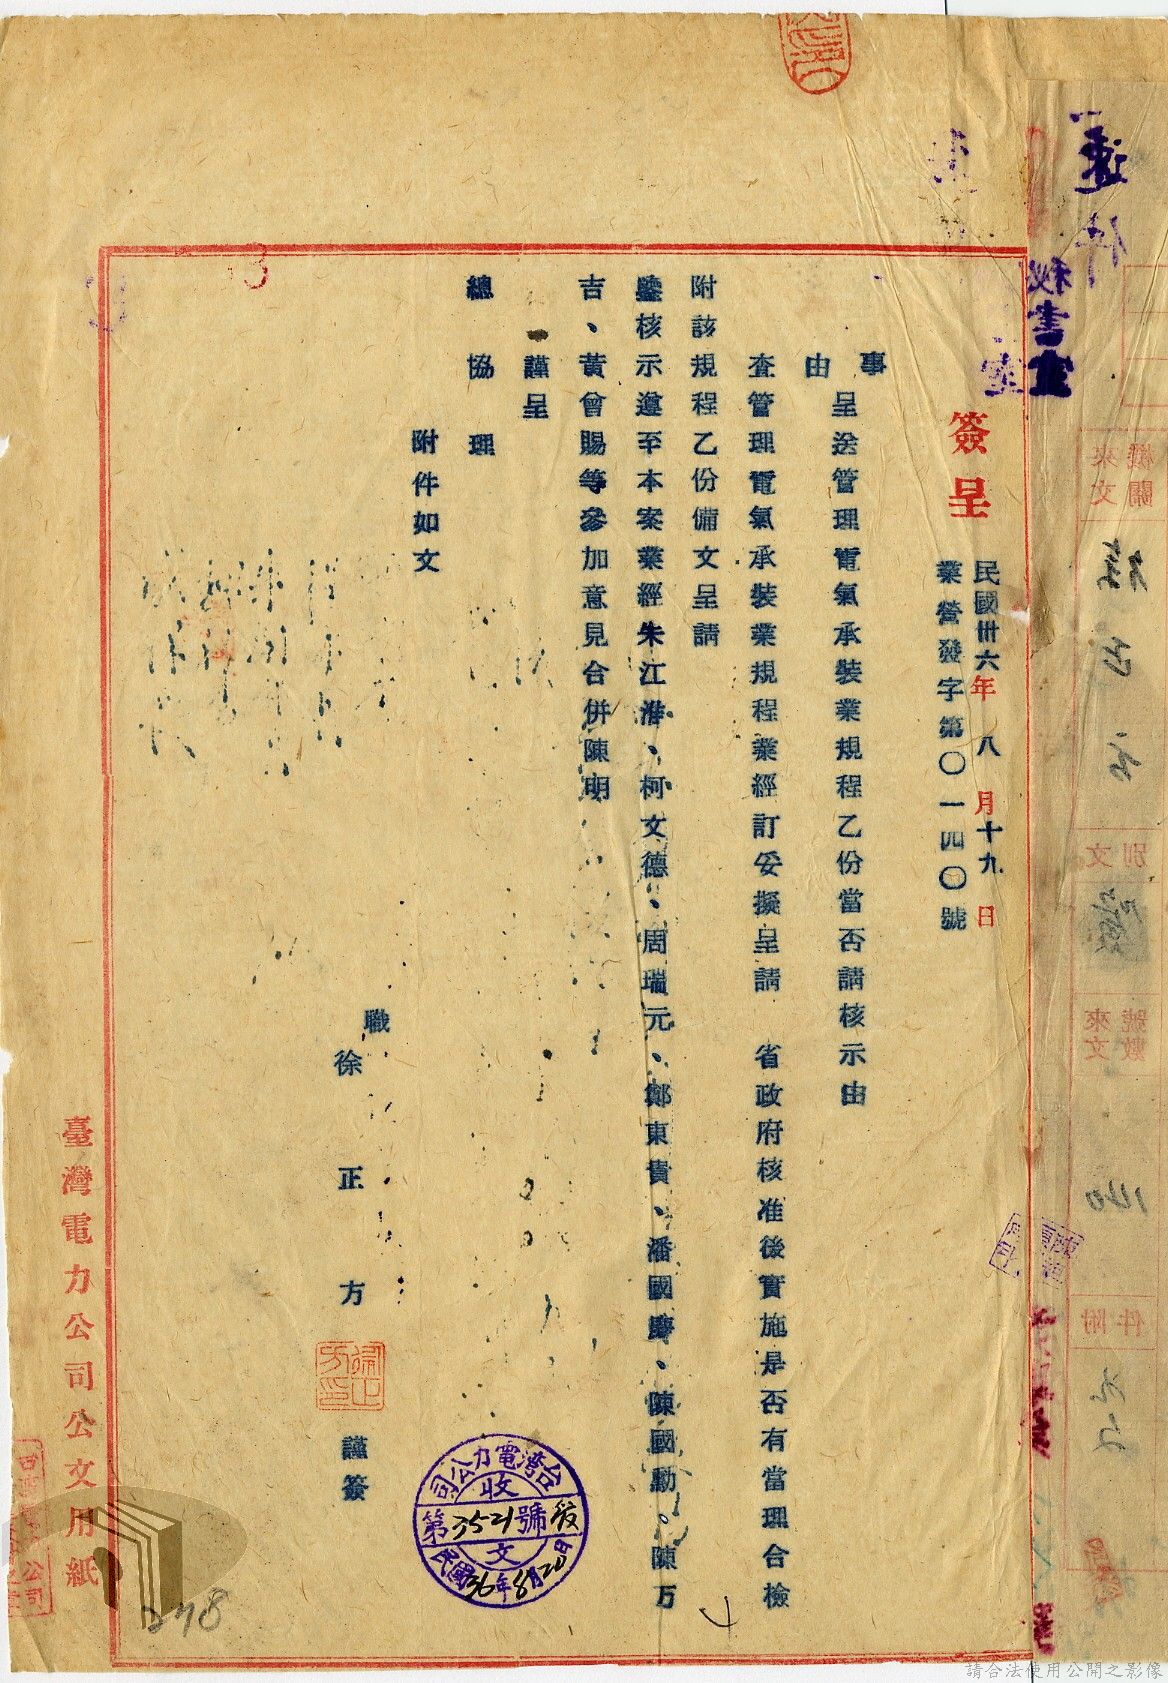 速件
秘書室
簽呈
民國卅六年八月十九日
業營發字第〇一四〇號
事由
呈送管理電氣承裝業規程乙份當否請核示由
查管理電氣承裝業規程業經訂妥擬呈請 省政府核准後實施是否有當理合檢
附該規程乙份備文呈請
鑒核示遵至本案業經朱江淮、柯文德、周瑞元、鄭東貴、潘國慶、陳國勳。陳万
吉、黃曾賜等參加意見合併陳明
謹呈
總協理
附件如文
職
徐正方
謹簽
台湾電力公司
收文
第3521號
民國36年8月20日
臺灣電力公司公文用紙
278
機關來文
別文
號數來文
件附
請合法使用公開之影像